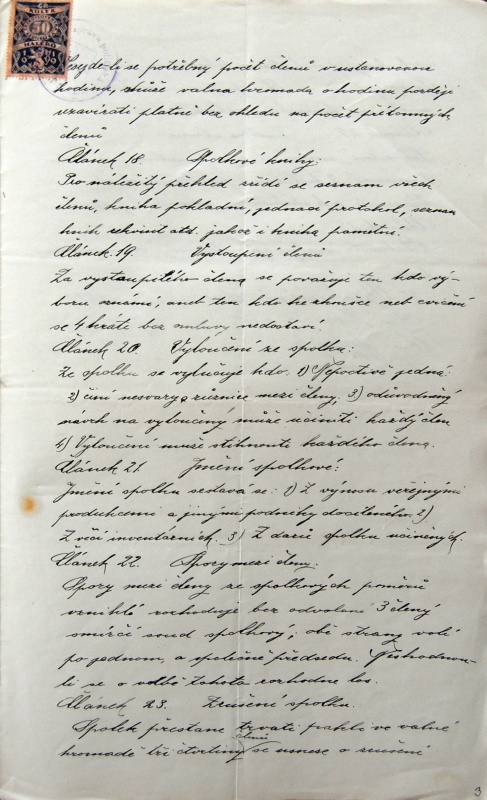 Nesejde-li se potřebný počet členů v ustanovenou
hodinu, může valná hromada o hodinu později
uzavírati platně bez ohledu na počet přítomných
členů
Článek 18. Spolkové knihy:
Pro náležitý přehled zřídí se seznam všech
členů, kniha pokladní, jednací protokol, seznam
knih rekvisit atd. jakož i kniha pamětní.
Článek 19. Vystoupení členů
Za vystoupilého člena se považuje ten kdo vý-
boru oznámí, aneb ten kdo ke zkoušce neb cvičení
se 4 kráte bez omluvy nedostaví.
Článek 20. Vyloučení ze spolku:
Ze spolku se vylučuje kdo: 1) Nepoctivě jedná.
2) činí nesvary a různice mezi členy, 3) odůvodněný
návrh na vyloučený může učiniti každý člen
4) Vyloučení může stihnouti každého člena.
Článek 21. Jmění spolkové:
Jmění spolku sestává se: 1) Z výnosu veřejnými
produkcemi a jinými podniky docíleného. 2)
Z věcí inventárních. 3) Z darů spolku učiněných.
Článek 22. Spory mezi členy.
Spory mezi členy ze spolkových poměrů
vzniklé rozhoduje bez odvolání 3 členný
smírčí soud spolkový; obě strany volí
po jednom, a společně předsedu. Neshodnou-
li se o volbě tohoto rozhodne los.
Článek 23. Zrušení spolku.
Spolek přestane trvati pakli ve valné
hromadě tři čtvrtiny členů se usnese o zrušení
3
KOLEK
50
HALÉŘŮ
1919